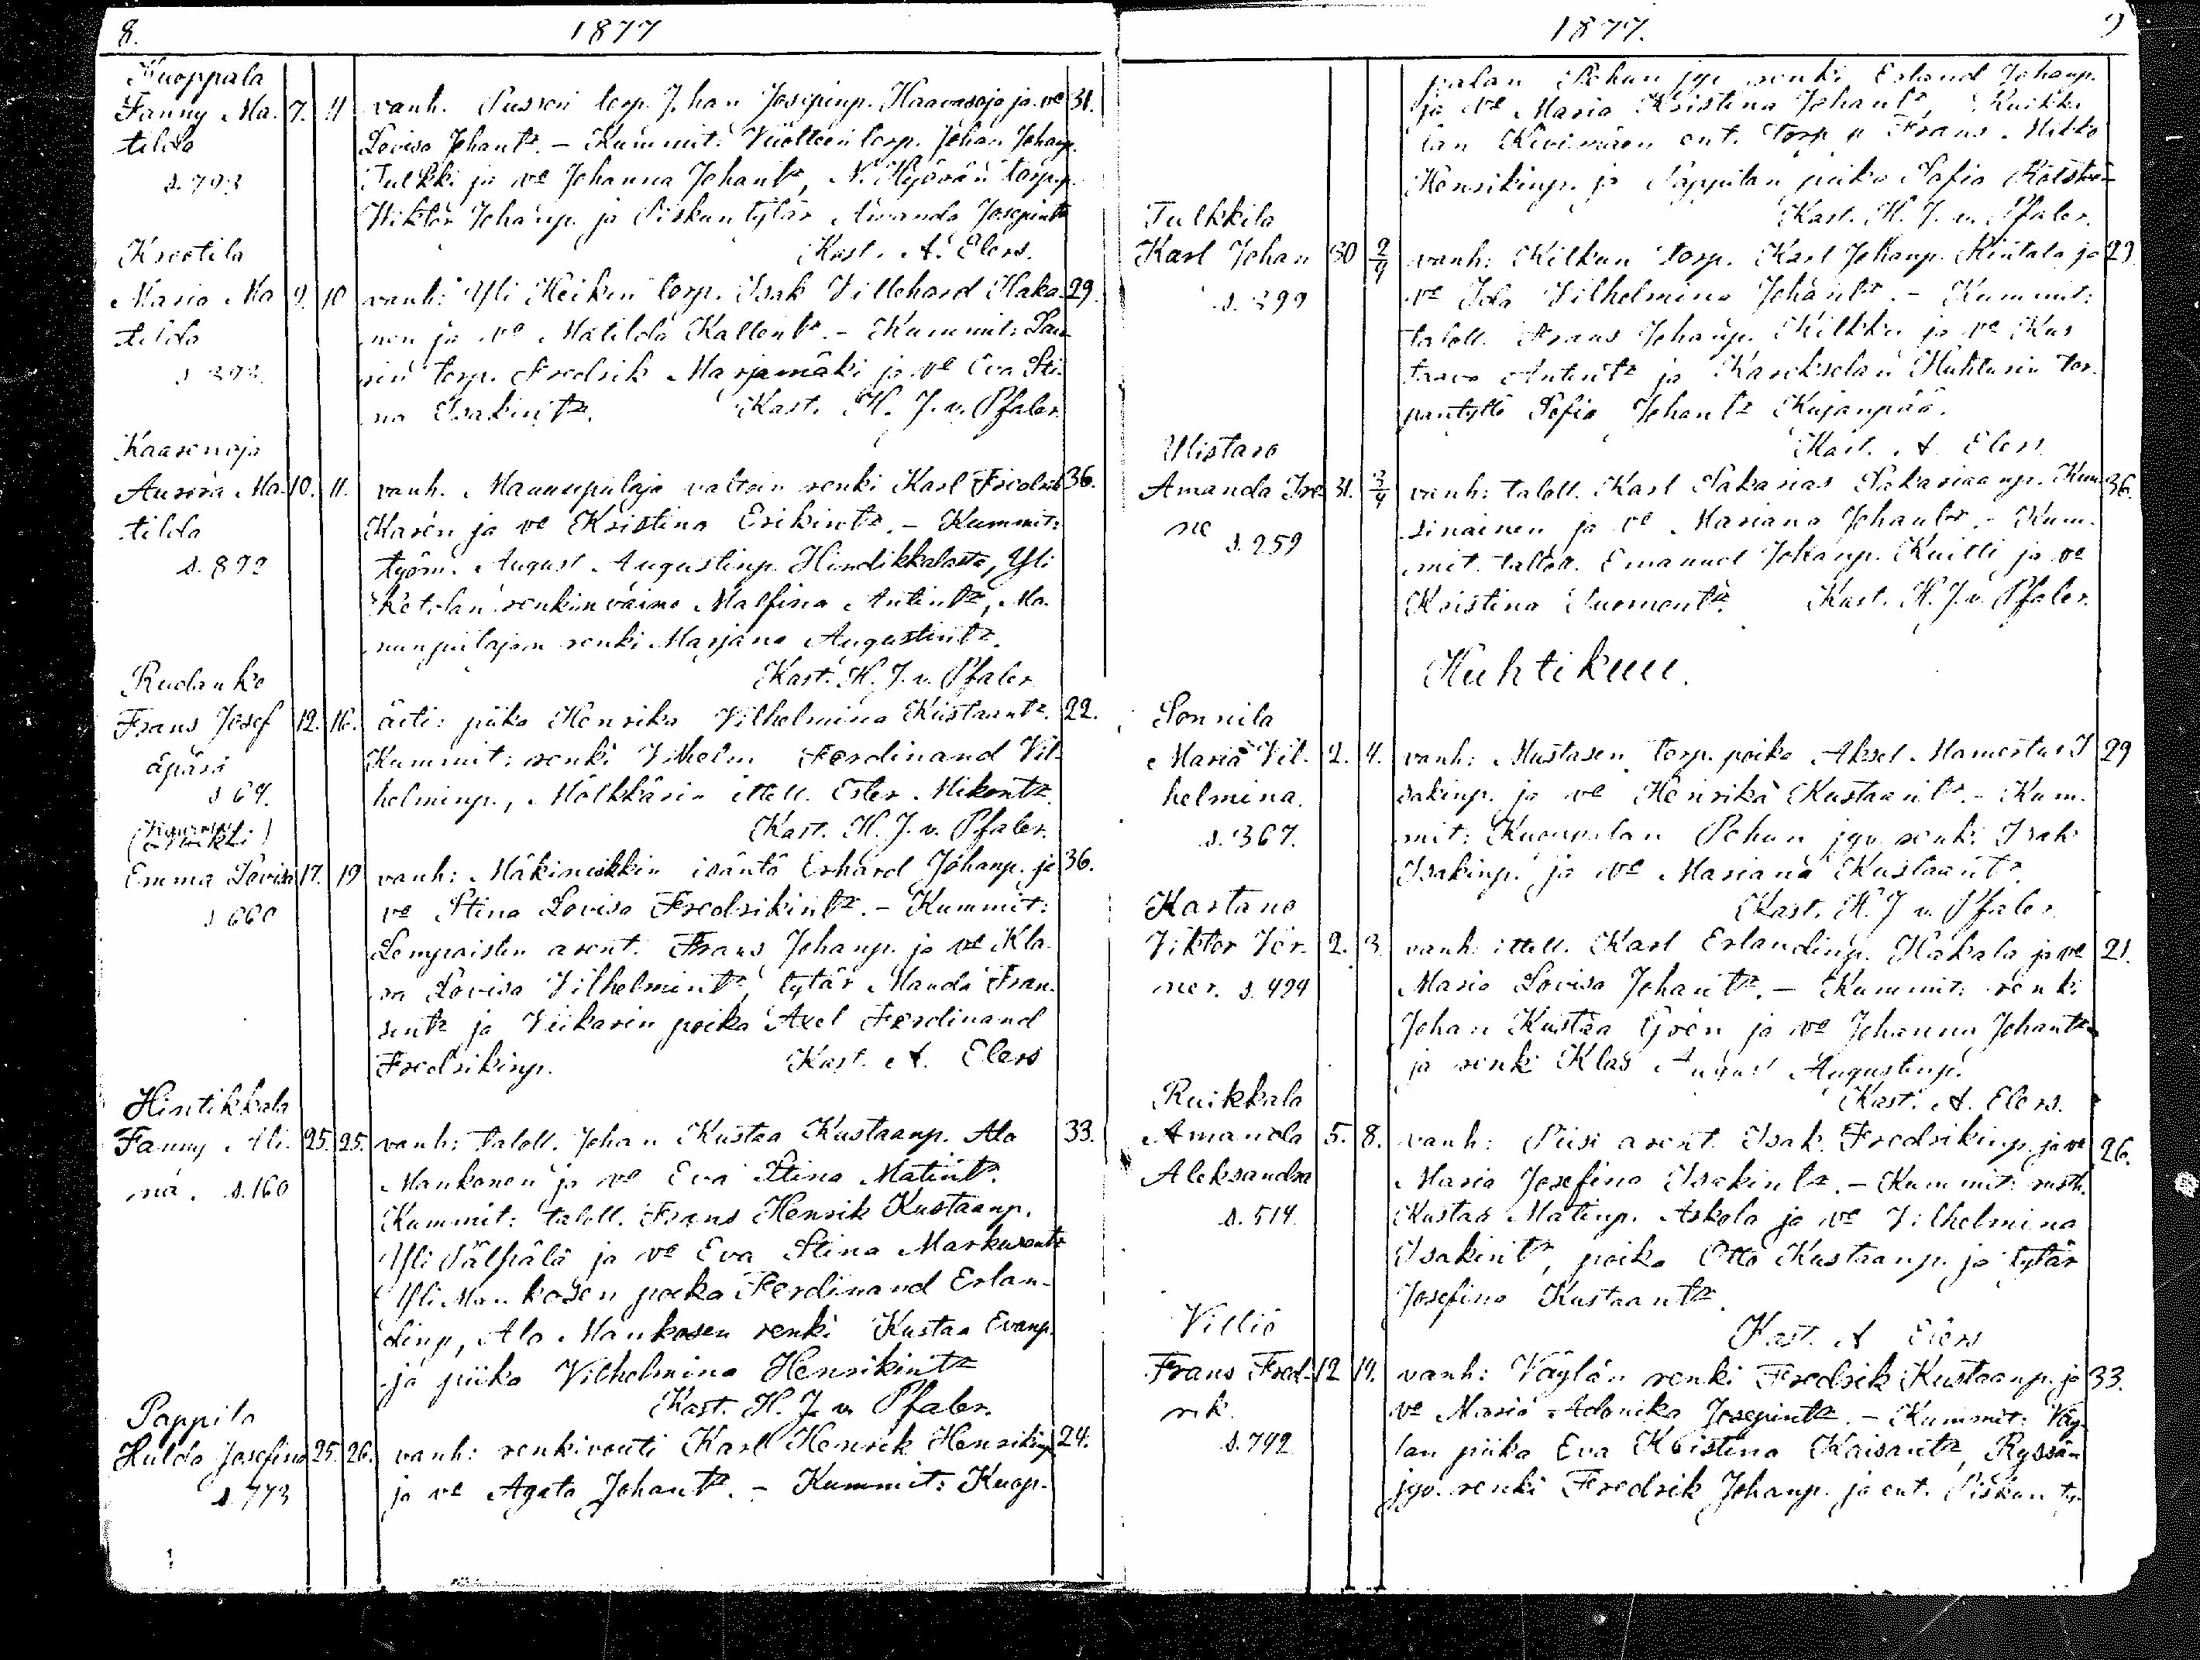 8. 1877
Kuoppala
Fanny Ma- 7. 11 vanh. torp. Johan Josepinp. Haavasoja ja vo 31.
tilda Lovisa Johantr. – Kummit: torp. Johan Johanp.
s. 793 Tulkki ja vo Johanna Johantr, N. Hyövön torp.p.
Viktor Johanp. ja Piskun tytär Amanda Josepintr
Kast. A. Elers.
Kreetila
Maria Ma 9. 10 vanh: Yli Heikin torp. Isak Villehard Haka- 29.
tilda nen ja vo Matilda Kallentr. – Kummit:
s. 392 torp. Fredrik Marjamäki ja vo Eva Sti-
na Isakintr. Kast. H. J. v. Pfaler.
Kaasenoja
Aurora Ma- 10. 11. vanh. renki Karl Fredrik 36.
tilda Karén ja vo Kristina Erikintr. – Kummit:
s. 892 työm. August Augustinp. Hindikkalasta, Yli
Ketolan renkinvaimo Malfina Antintr, Ma-
renki Marjana Augustintr.
Kast. H. J. v. Pfaler
Rudanko
Frans Josef 12. 16. äiti: piika Henrika Vilhelmina Kustaantr. 22.
äpärä Kummit: renki Vilhelm Ferdinand Vil-
s 69. helminp., Mälkkärin ittell. Ester Mikontr.
Kast. H. J. v. Pfaler.
Emma Lovisa 17. 19 vanh: Mäkimikkin isäntä Erhard Johanp. ja 36.
s 660 vo Stina Lovisa Fredrikintr. – Kummit:
Lempaisten arent. Frans Johanp. ja vo Kla-
ra Lovisa Vilhelmintr, tytär Manda Fran-
sintr ja Viikarin poika Axel Ferdinand
Fredrikinp. Kast. A. Elers
Hintikkala
Fanny Ali- 25. 25. vanh: taloll. Johan Kustaa Kustaanp. Ala 33.
na. s. 160 Mankonen ja vo Eva Stina Matintr.
Kummit: taloll. Frans Henrik Kustaanp.
Yli Sälpälä ja vo Eva Stina Markusentr
Yli Mankosen poika Ferdinand Erlan-
dinp, Ala Mankosen renki Kustaa Evanp.
ja piika Vilhelmina Henrikintr
Kast. H. J. v. Pfaler.
Pappila
Hulda Josefina 25. 26. vanh: renkivouti Karl Henrik Henrikinp 24.
s 773 ja vo Agata Johantr. – Kummit: Kuop-
1877. 9
palan Pehun jyv. renki Erland Johanp.
ja vo Maria Kristina Johantr, Ruikka
lan Kivimäen ent. torp. p Frans Mikko
Henrikinp. ja Pappilan piika Sofia
Kast. H. J. v. Pfaler.
Tulkkila
Karl Johan 30 2/4 vanh: Kilkun torp. Karl Johanp. Rintala ja 23.
s. 399 vo Ida Vilhelmina Johantr. – Kummit:
taloll. Frans Johanp. Kilkku ja vo Kus
taava Antintr ja Karekselan Huhturin tor-
pantyttö Sofia Johantr Kujanpää.
Kast. A. Elers
Ylistaro
Amanda Ire- 31. 3/4 vanh: taloll. Karl Sakarias Sakariaanp. Kun- 36.
ne s. 259 sinainen ja vo Mariana Johantr. – Kum-
mit. Emanuel Johanp. Knilli ja vo
Kristina Tuomontr. Kast. H. J. v. Pfaler
Huhtikuu.
Sonnila
Maria Vil- 2. 4. vanh: Mustasen torp. poika Aksel Mamertus I 29
helmina. sakinp. ja vo Henrika Kustaantr. – Kum-
s. 367. mit: Kuoppalan Pehun jyv. renki Isak
Isakinp. ja vo Mariana Kustaantr.
Kast. H. J. v. Pfaler
Kartano
Viktor Ver- 2. 3. vanh: ittell. Karl Erlandinp. Hakala ja vo 21.
ner. s. 494 Maria Lovisa Johantr. – Kummit: renki
Johan Kustaa Grén ja vo Johanna Johantr
ja renki Klas August Augustinp.
Kast. A. Elers.
Ruikkala
Amanda 5. 8. vanh: Piisi arent. Isak Fredrikinp. ja vo 26.
Aleksandra Maria Josefina Isakintr. – Kummit: rusth.
s. 514. Kustaa Matinp. Askola ja vo Vilhelmina
Isakintr, poika Otto Kustaanp. ja tytär
Josefina Kustaantr.
Kast. A Elers
Villiö
Frans Fred- 12 14. vanh: Väylän renki Fredrik Kustaanp. ja 33.
rik. vo Maria Adonika Josepintr. – Kummit: Väy-
s. 742 län piika Eva Kristina Kaisantr, Ryssän
jyv. renki Fredrik Johanp. ja ent. Piskun ty-